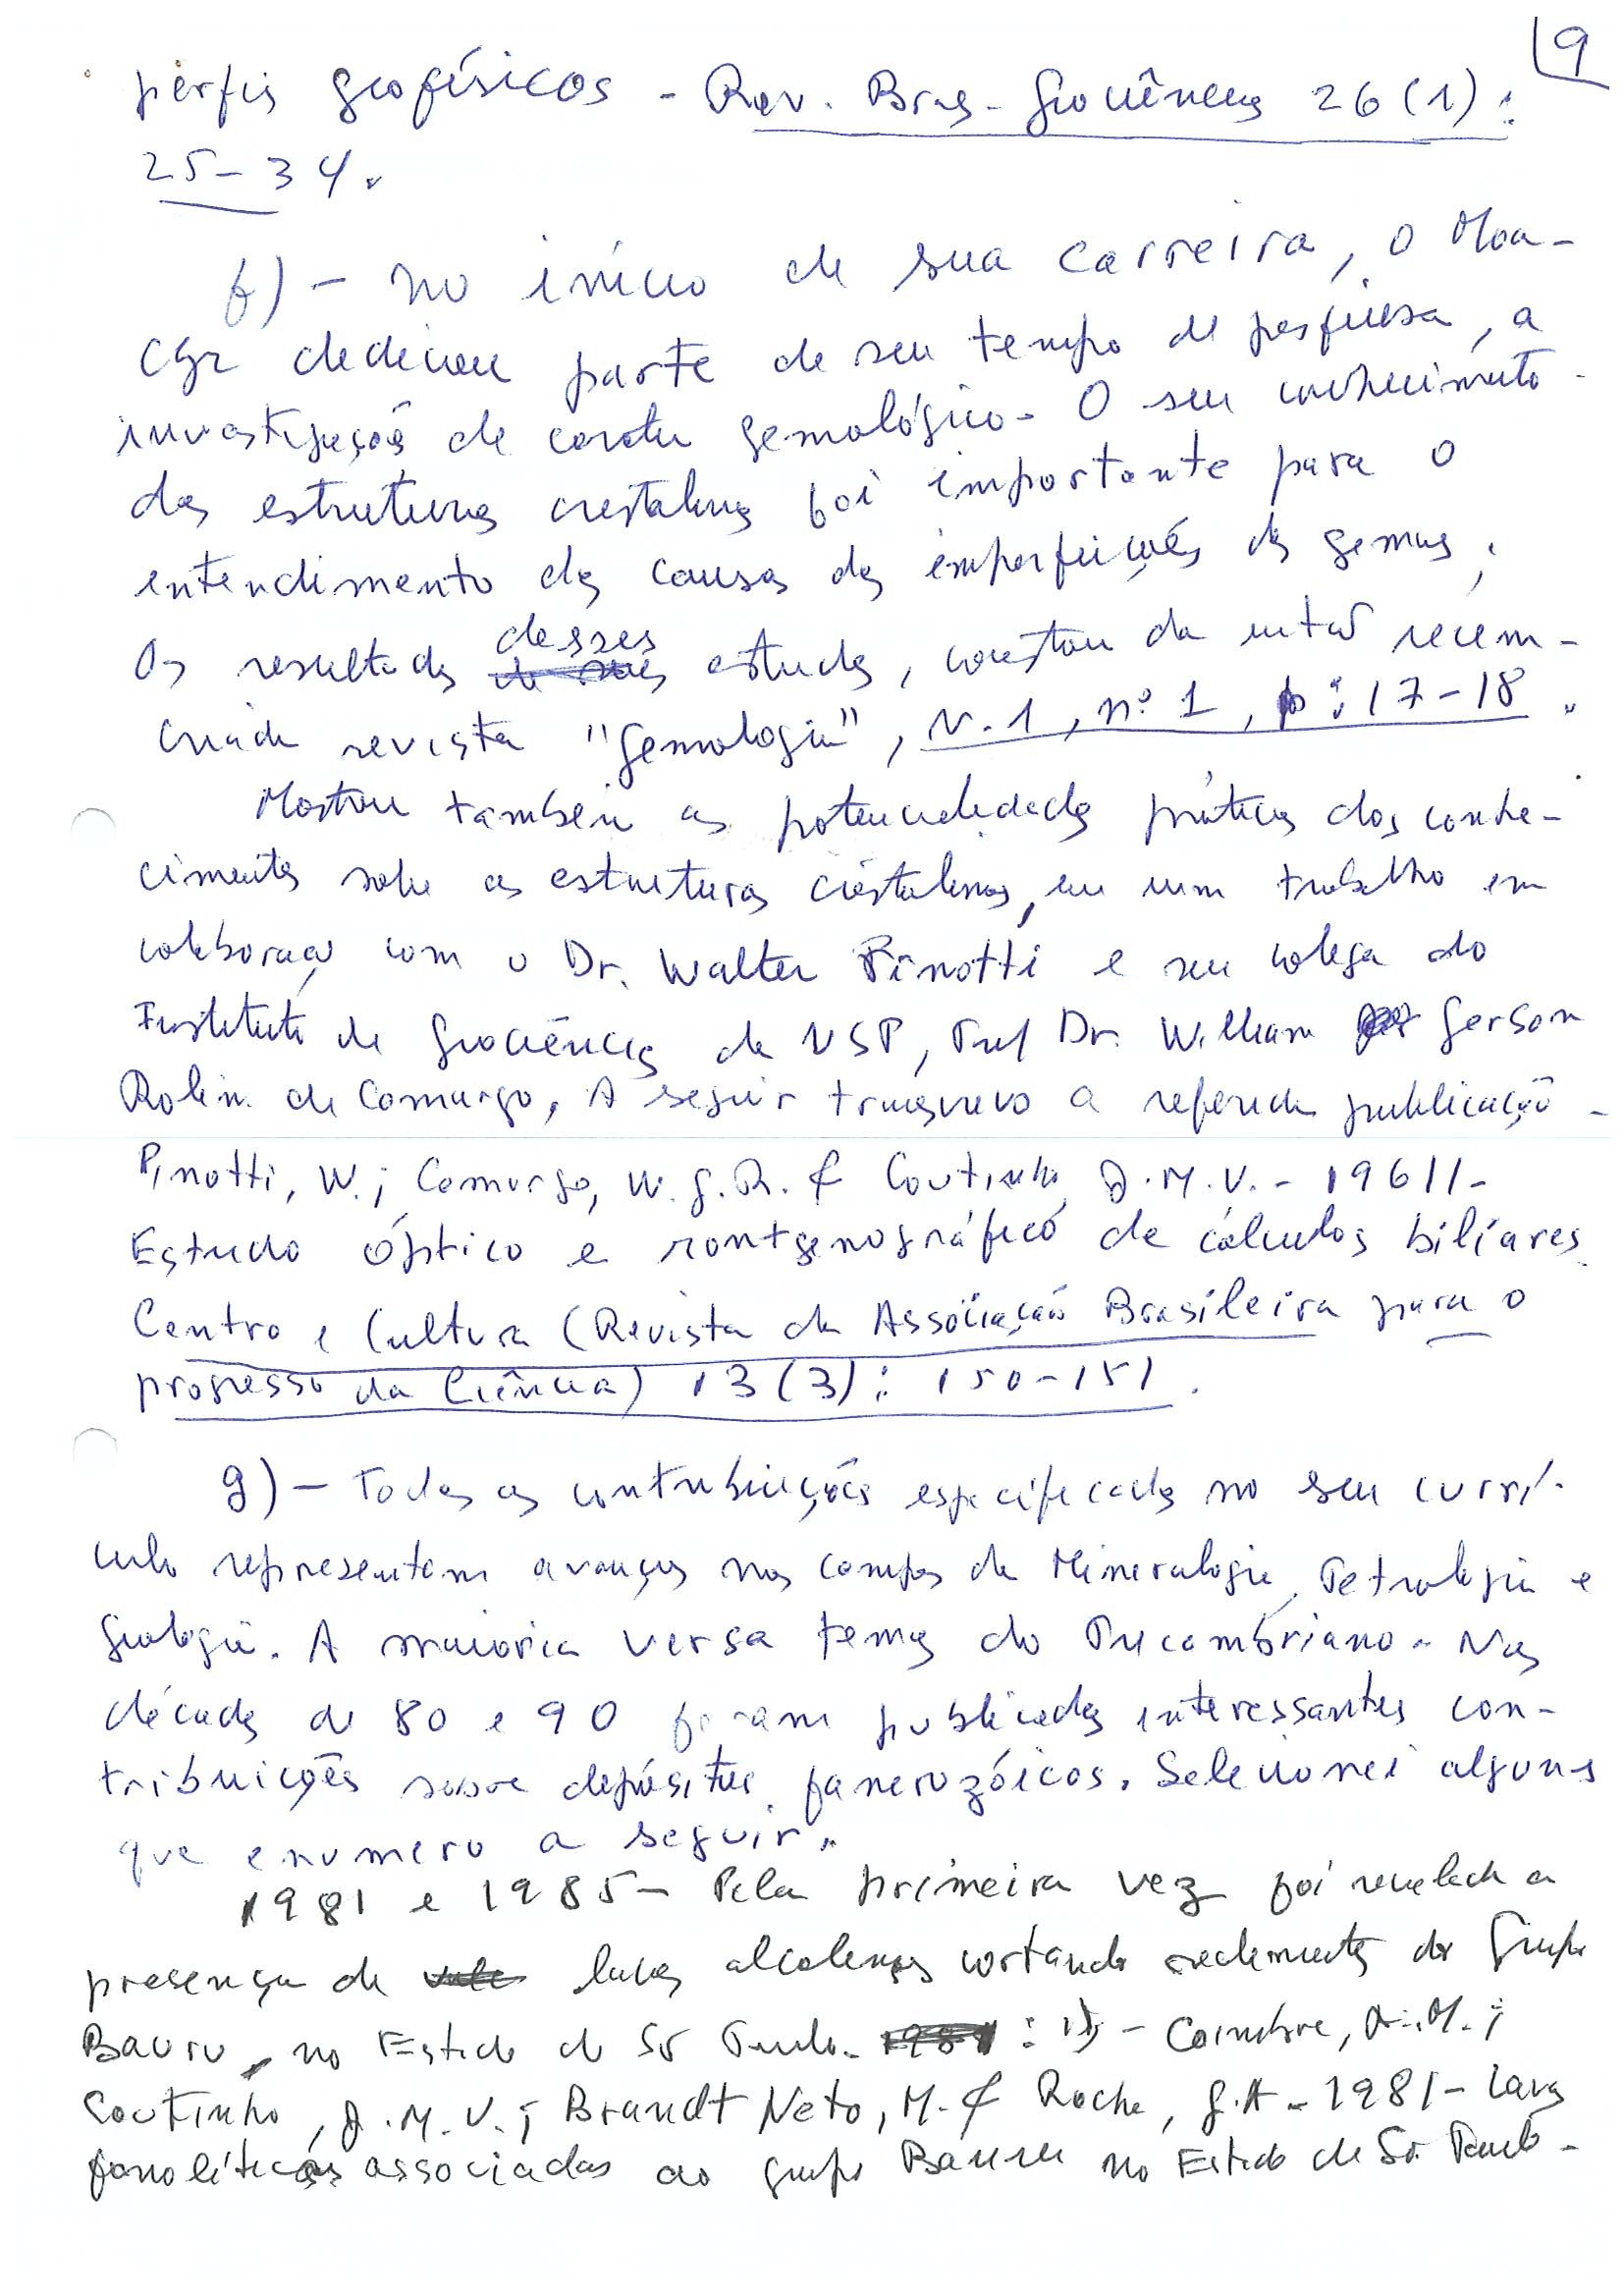 9
perfis geofísicos - Rev. Bras. Geociências 26(1):
25-34.
f) - No início de sua carreira, o Moa-
cyr dedicou parte de seu tempo de pesquisa, a
investigações de carater gemológico. O seu conhecimento
das estruturas cristalinas foi importante para o
entendimento das causas das imperfeições das gemas.
Os resultados desses estudos, constam da então recem-
criada revista "Gemologia", V.1, nº 1, p: 17-18.
Mostrou também as potencialidades práticas dos conhe-
cimentos sobre as estruturas cristalinas, em um trabalho em
colaboração com o Dr. Walter Pinotti e seu colega do
Instituto de Geociências da USP, Prof Dr. William Gerson
Rolim de Camargo. A seguir transcrevo a referida publicação -
Pinotti, W.; Camargo, W.G.R. & Coutinho, J.M.V. - 1961 -
Estudo óptico e rontgenográfico de cálculos biliares
Centro e Cultura (Revista da Associação Brasileira para o
progresso da Ciência) 13(3): 150-151.
g) - Todas as contribuições especificadas no seu currí-
culo representam avanços nos campos da Mineralogia, Petrologia e
Geologia. A maioria versa temas do Precambriano. Nas
décadas de 80 e 90 foram publicadas interessantes con-
tribuições sobre depósitos fanerozóicos. Selecionei algumas
que enumero a seguir.
1981 e 1985 - Pela primeira vez foi revelada a
presença de lavas alcalinas cortando sedimentos do Grupo
Bauru, no Estado de São Paulo. : 1) - Coimbra, A.M.;
Coutinho, J.M.V.; Brandt Neto, M. & Rocha, G.A - 1981 - Lavas
fonolíticas associadas ao grupo Bauru no Estado de São Paulo -